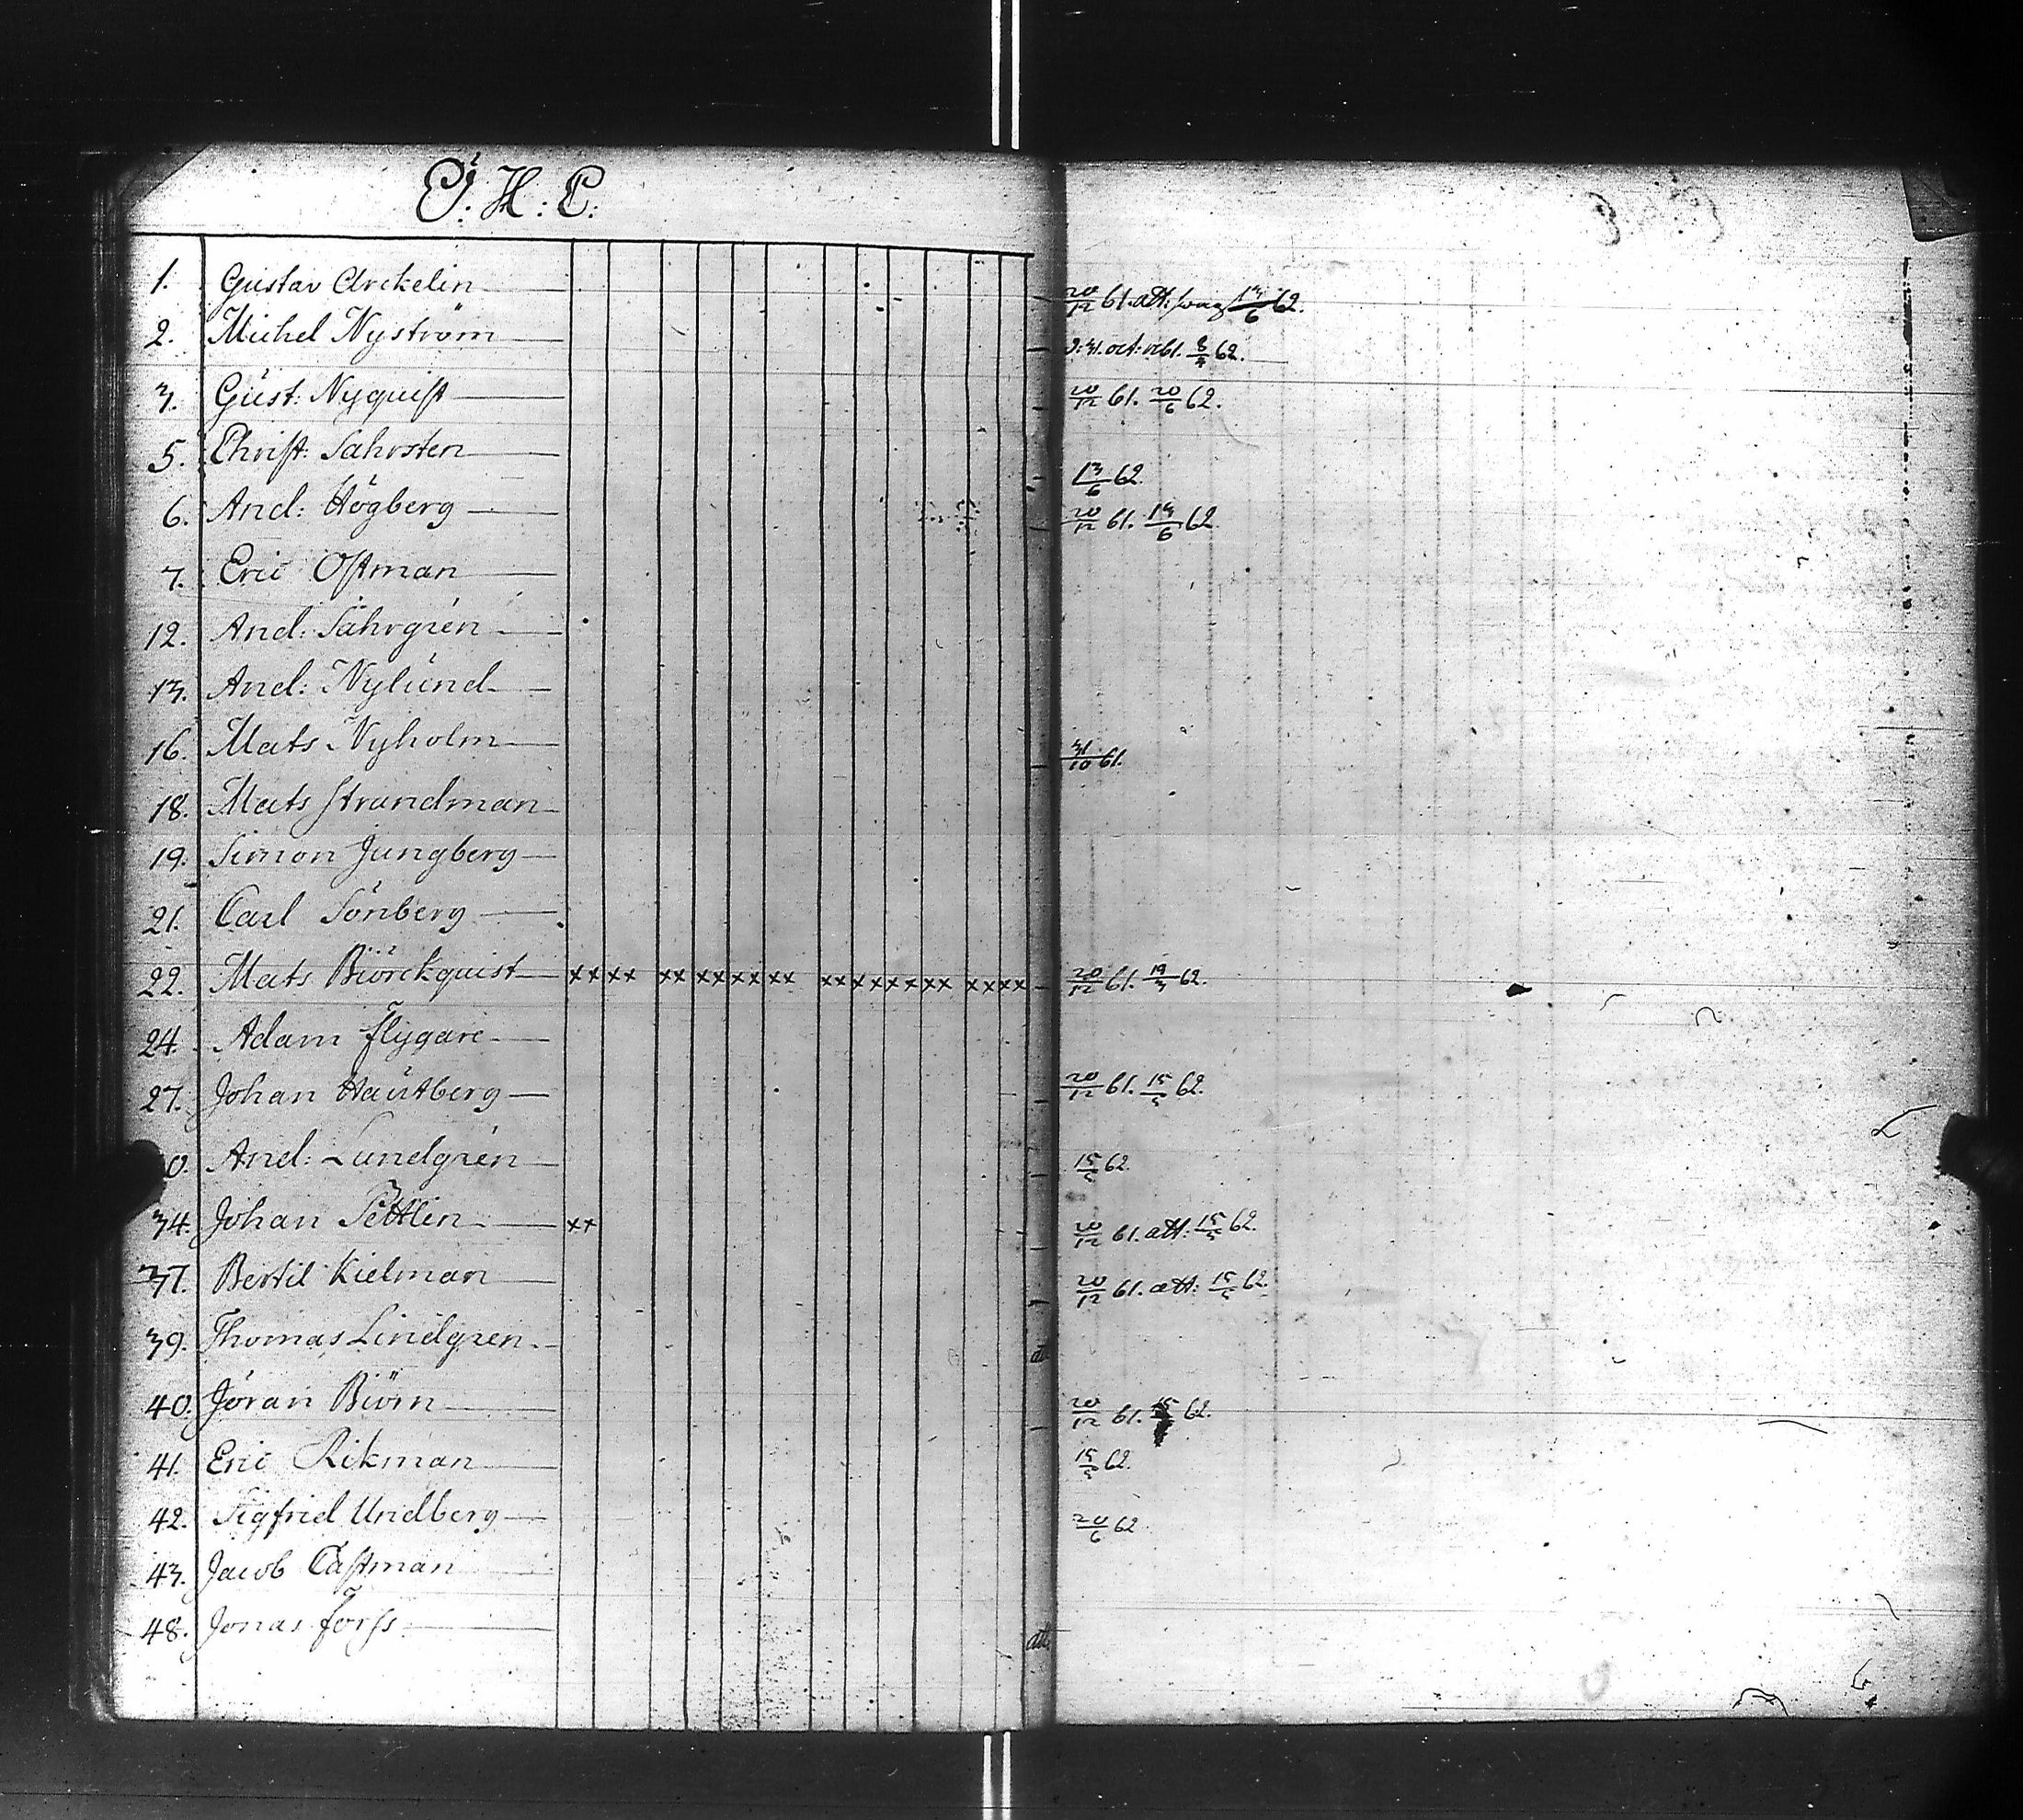 Ö: H: C:
1. Gustav Arckelin 20/12 61. att: svag 13/6 62.
2. Michel Nyström 31. oct: 8/4 62.
3. Gust: Nyquist 20/12 61. 20/6 62.
5. Christ: Sahrsten 13/6 62.
6. And: Högberg 20/12 61. 14/6 62.
7. Eric Ostman
12. And: Sahrgren
13. And: Nylund
16. Mats Nyholm 31/10 61.
18. Mats Strandman
19. Simon Jungberg
21. Carl Sönberg
22. Mats Biörckquist xx xx xx xx xx xx xx xx xx xx xx xx 20/12 61. 19/3 62.
24. Adam Flygare
27. Johan Hautberg 20/12 61. 15/5 62.
0. And: Lundgren 15/5 62.
34. Johan Pettlin xx 20/12 61. att: 15/5 62.
37. Bertil Kielman 20/12 61. att: 15/5 62.
39. Thomas Lindgren att
40. Jöran Biörn 20/12 61. 15/5 62.
41. Eric Rikman 15/5 62.
42. Sigfrid Undberg 20/6 62
43. Jacob Castman
48. Jonas Forss att